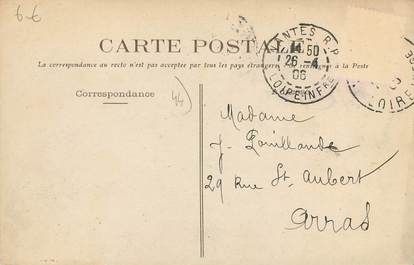 6€
CARTE POSTAL
La correspondance au recto n'est pas acceptée par tous les pays étrangers
à la Poste
NANTES R.P.
50
26-4
06
LOIRE INFRE
LOIRE
Correspondance
44)
Madame
J.
29 Rue St. Aubert
Arras